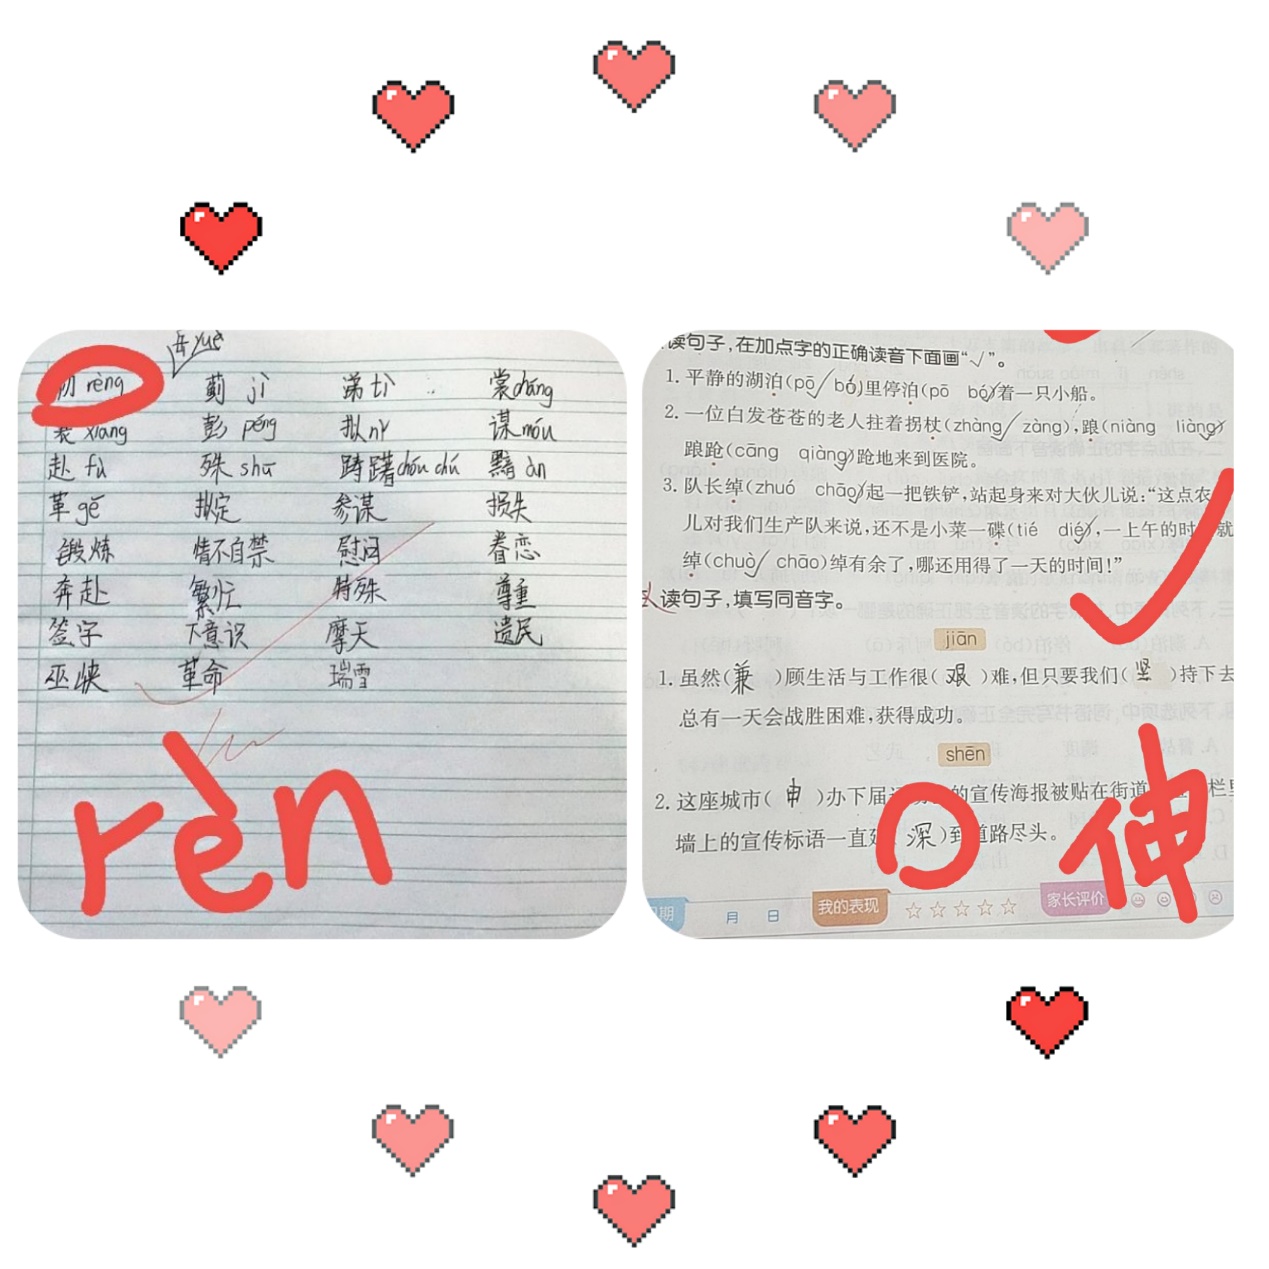 岳yuè
rèng 蓟 jì 涕tì 裳cháng
裴 xiāng 彭 péng 拟nǐ 谋móu
赴 fù 殊 shū 踌躇chóu chú 黯 àn
革gé 拟定 参谋 损失
锻炼 情不自禁 慰问 眷恋
奔赴 繁忙 特殊 尊重
签字 下意识 摩天 遗民
巫峡 革命 瑞雪
rèn
读句子，在加点字的正确读音下面画“√”。
1. 平静的湖泊(pō√ bó)里停泊(pō bó√)着一只小船。
2. 一位白发苍苍的老人拄着拐杖(zhàng√ zàng)，踉(niàng liàng√)
踉跄(cāng qiàng√)跄地来到医院。
3. 队长绰(zhuó chāo√)起一把铁铲，站起身来对大伙儿说：“这点农
儿对我们生产队来说，还不是小菜一碟(tié dié√)，一上午的时 就
绰(chuò√ chāo)绰有余了，哪还用得了一天的时间！”
读句子，填写同音字。
jiān
1. 虽然(兼)顾生活与工作很(艰)难，但只要我们(坚)持下去
总有一天会战胜困难，获得成功。
shēn
2. 这座城市(申)办下届 的宣传海报被贴在街道 栏里
墙上的宣传标语一直延(深)到道路尽头。
伸
期 月 日 我的表现 ☆☆☆☆☆ 家长评价